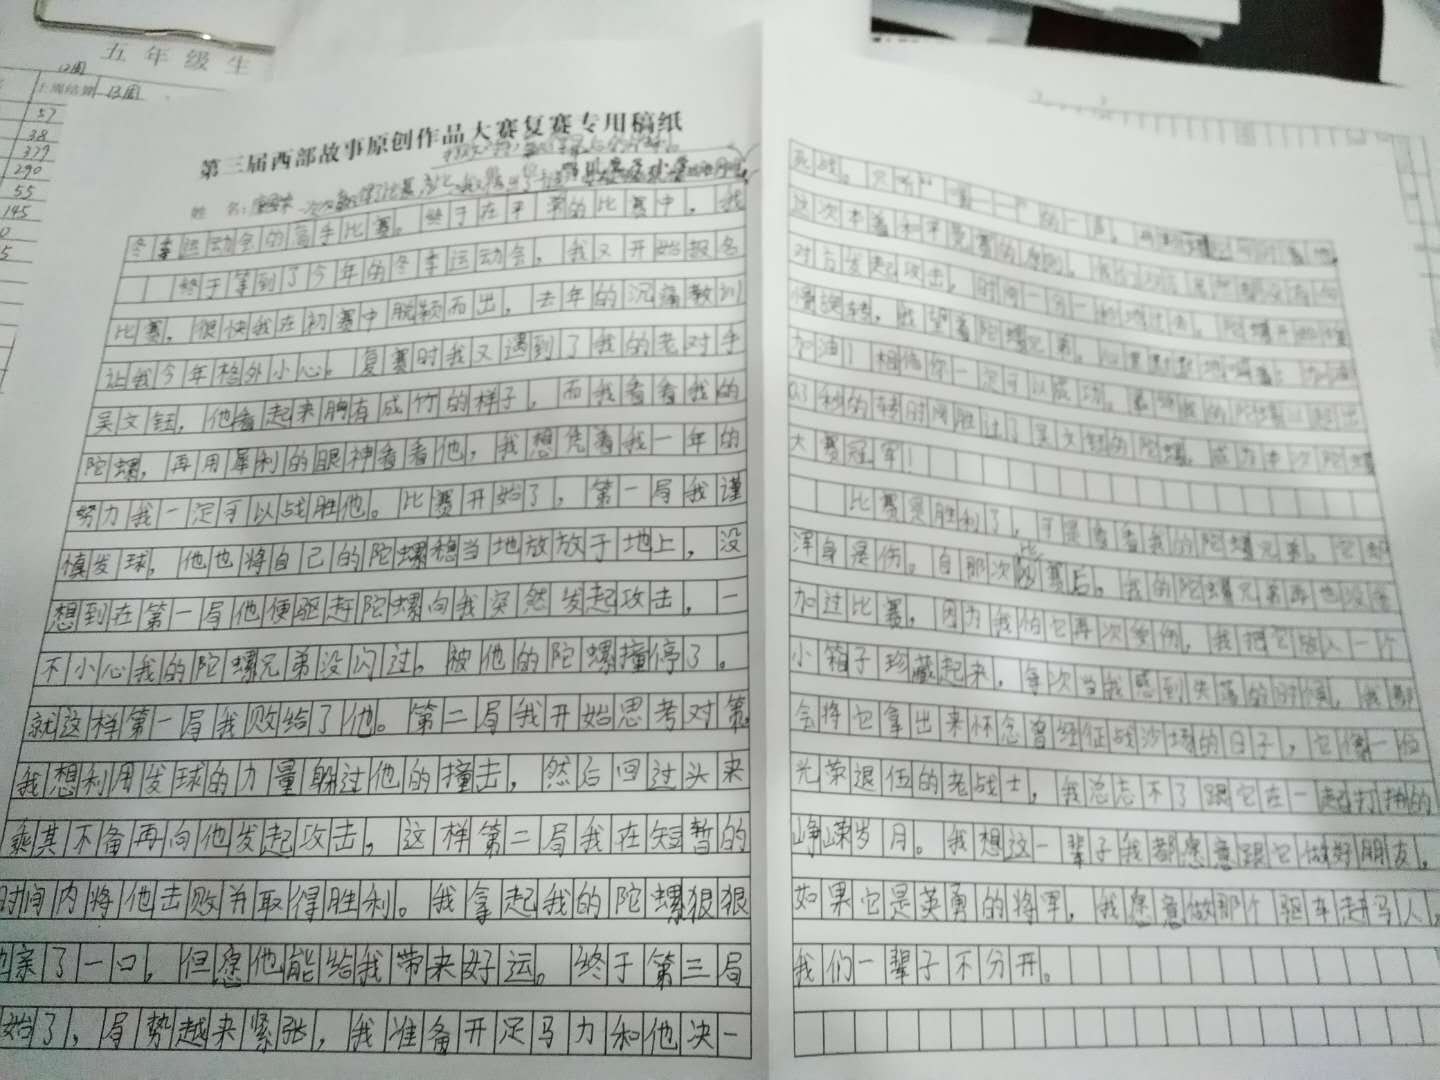 五年级生
12周
上周结算 13周
57
38
377
290
55
145
0
5
第三届西部故事原创作品大赛复赛专用稿纸
姓 名：
冬季运动会的高手比赛。终于在平常的比赛中，我
终于等到了今年的冬季运动会，我又开始报名
比赛，很快我在初赛中脱颖而出，去年的沉痛教训
让我今年格外小心。复赛时我又遇到了我的老对手
吴文钰，他看起来胸有成竹的样子，而我看看我的
陀螺，再用犀利的眼神看看他，我想凭着我一年的
努力我一定可以战胜他。比赛开始了，第一局我谨
慎发球，他也将自己的陀螺稳当地放放于地上，没
想到在第一局他便驱赶陀螺向我突然发起攻击，一
不小心我的陀螺兄弟没闪过。被他的陀螺撞停了。
就这样第一局我败给了他。第二局我开始思考对策。
我想利用发球的力量躲过他的撞击，然后回过头来
乘其不备再向他发起攻击，这样第二局我在短暂的
时间内将他击败并取得胜利。我拿起我的陀螺狠狠
地亲了一口，但愿他能给我带来好运。终于第三局
始了，局势越来紧张，我准备开足马力和他决一
死战。只听
这次本着和平竞赛的原则，
对方发起攻击，时间一分一秒地过去，陀螺开始
我望着陀螺兄弟，
加油！相信你一定可以成功。最终我的陀螺以超出
0.3秒的转时间胜过了吴文钰的陀螺，成为本次陀螺
大赛冠军！
比赛是胜利了，可是看看我的陀螺兄弟。它都
浑身是伤。自那次比赛后，我的陀螺兄弟再也没参
加过比赛，因为我怕它再次受伤，我把它放入一个
小箱子珍藏起来，每次当我感到失落的时候，我都
会将它拿出来怀念曾经征战沙场的日子，它像一位
光荣退伍的老战士，我总忘不了跟它在一起打拼的
峥嵘岁月。我想这一辈子我都愿意跟它做好朋友，
如果它是英勇的将军，我愿意做那个驱车赶马人，
我们一辈子不分开。